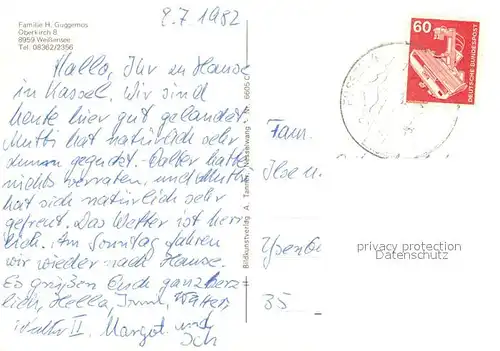 9.7.1982
Familie H. Guggemos
Oberkirch 8
8959 Weißensee
Tel. 08362/2356
Hallo, Ihr zu Hause
in Kassel. Wir sind
heute hier gut gelandet.
Mutti hat natürlich sehr
dumm geguckt. Walter hatte
nichts verraten, und Mutti
hat sich natürlich sehr
gefreut. Das Wetter ist herr
lich. Am Sonntag fahren
wir wieder nach Hause.
Es grüßen Euch ganz herz
lich, Hella, Walter,
Walter II. Margot und
Ich
Bildkunstverlag A. Tanner, Nesselwang Nr. 6605
60
DEUTSCHE BUNDESPOST
Fam.
Ilse u.
Ysenbu
35
privacy protection
Datenschutz